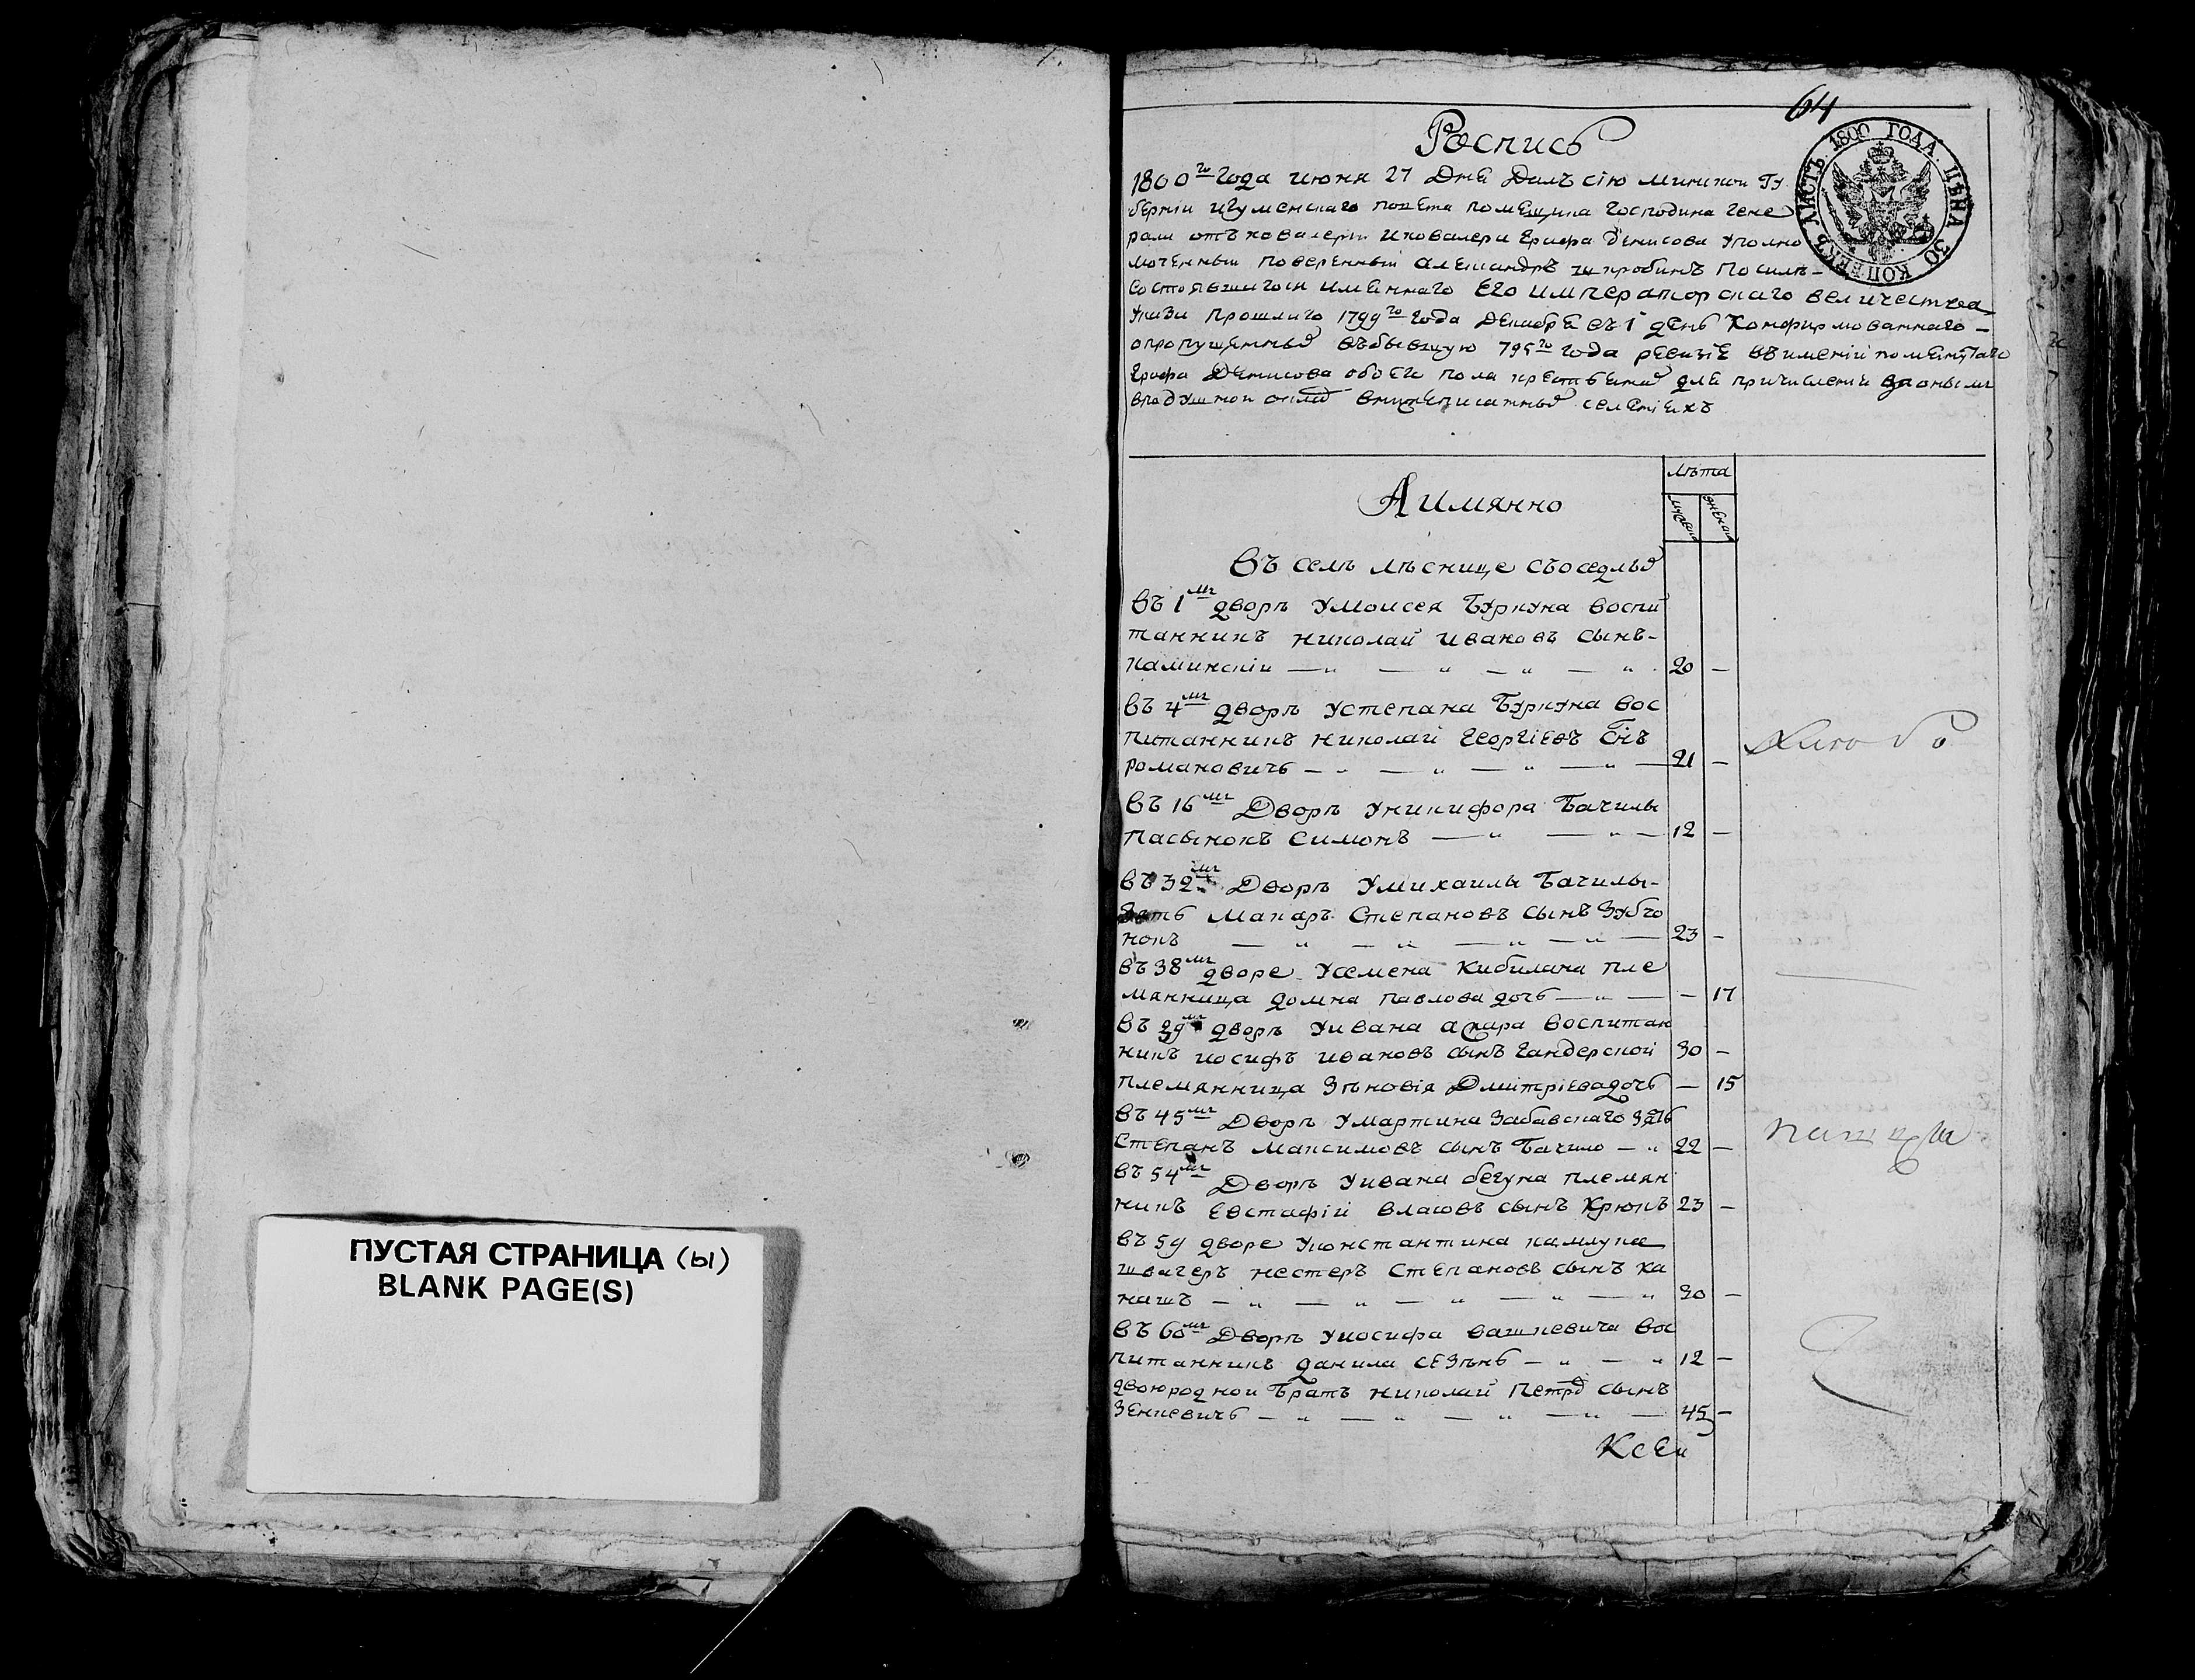 64
Роспись
ЛИСТЪ 1800 ГОДА. ЦѢНА 30 КОПѢЕКЪ
1800го года июня 27 дня далъ сію минской Гу
берніи игуменскаго повета помещика Господина Гене
рала отъ кавалеріи и кавалера Графа Денисова уполно
моченный поверенный александръ по силѣ
состоявшигося имяннаго Его императорскаго величества
указа прошлаго 1799го года декабря въ 1 день конфирмованнаго
опропущенныхъ въбывшую 795го года ревизіе въимении помянутаго
Графа Денисова обоего пола крестьянахъ для причисления заонымъ
вподушной окладъ внижеписанныхъ селенияхъ
Аимянно
лѣта
мужеска
женска
Въ селѣ лѣснице съоседлыхъ
въ 1мъ дворѣ умоисея Буркуна воспи
танникъ николай ивановъ сынъ
каминскіи 20 —
въ 4мъ дворѣ устепана Буркуна вос
питанникъ николай георгіевъ снъ
романовичь 21 —
въ 16мъ Дворѣ уникифора Бачилы
пасынокъ симонъ 12 —
въ 32мъ Дворѣ умихаилы Бачилы
зять макаръ степановъ сынъ зубчо
нокъ 23 —
въ 38мъ дворе усемена кибилана пле
мянница домна павлова дочь — 17
въ 39мъ дворѣ уивана воспитан
никъ иосифъ ивановъ сынъ гандерской 30 —
племянница зѣновія Дмітріевадочь — 15
въ 45мъ Дворѣ умартина забавскаго зять
степанъ максимовъ сынъ Бачило 22 —
въ 54мъ Дворѣ уивана бегуна племян
никъ евстафій власовъ сынъ крюкъ 23 —
въ 59 дворе уконстантина
швагеръ нестеръ степановъ сынъ ка
нашъ 30 —
въ 60мъ Дворѣ уиосифа вашкевича вос
питанникъ данила 12 —
двоюродной братъ николай петръ сынъ
зенкевичь 45 —
ПУСТАЯ СТРАНИЦА (ы)
BLANK PAGE(S)